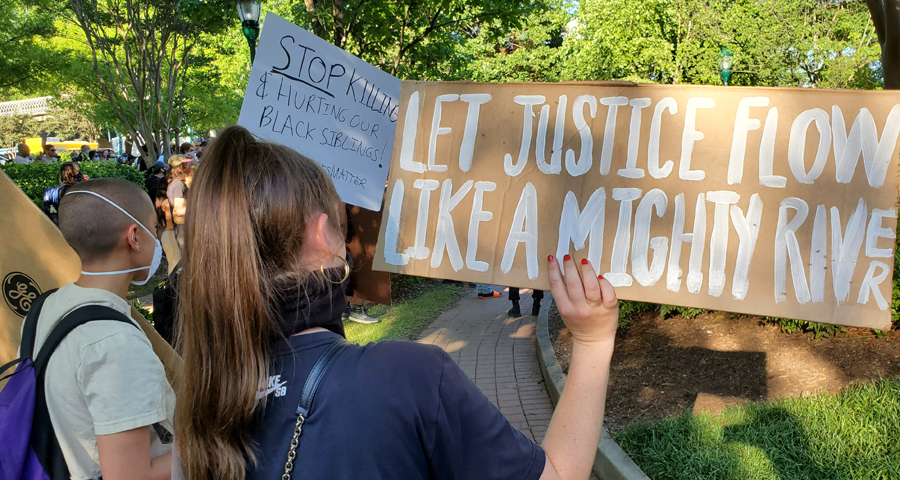 STOP KILLING
& HURTING OUR
BLACK SIBLINGS!
MATTER
LET JUSTICE FLOW
LIKE A MIGHTY RIVER
NIKE SB
GE